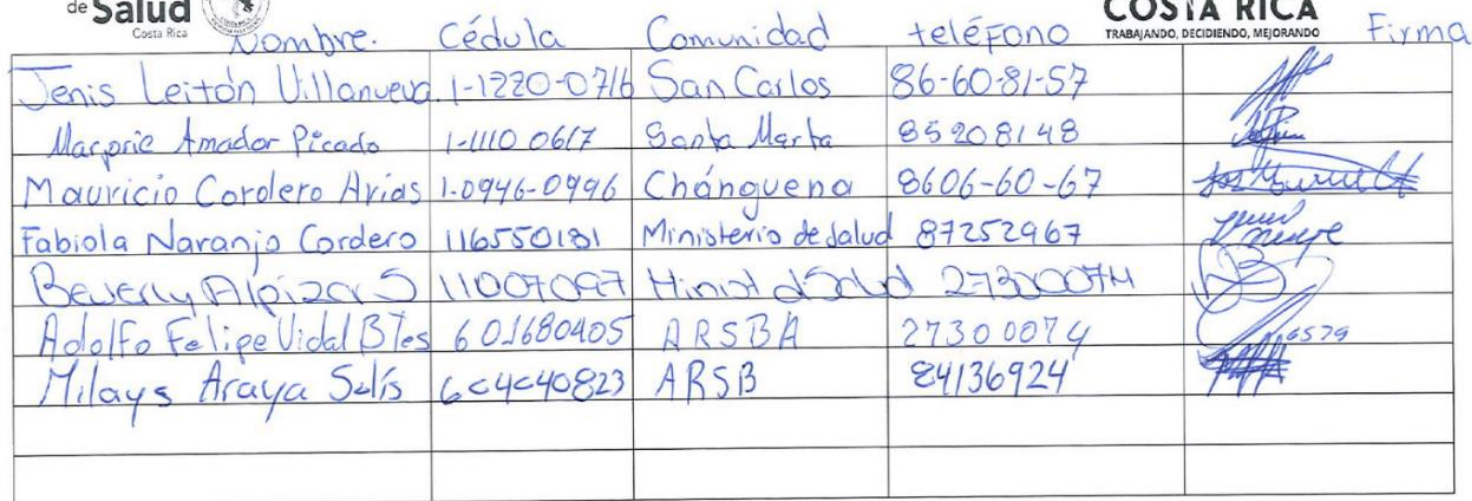 de Salud
Costa Rica
COSTA RICA
TRABAJANDO, DECIDIENDO, MEJORANDO
Nombre. Cédula Comunidad teléfono Firma
Jenis Leitón Villanueva. 1-1220-0716 San Carlos 86-60-81-57
Marjorie Amador Picado 1-1110 0617 Santa Marta 85208148
Mauricio Cordero Arias 1-0946-0996 Chánguena 8606-60-67
Fabiola Naranjo Cordero 116550181 Ministerio de Salud 87252967
Beverly Alpizar S 11007097 Minist d Salud 27300074
Adolfo Felipe Vidal B 601680405 ARSBA 27300074
Milays Araya Solís 604040823 ARSB 84136924